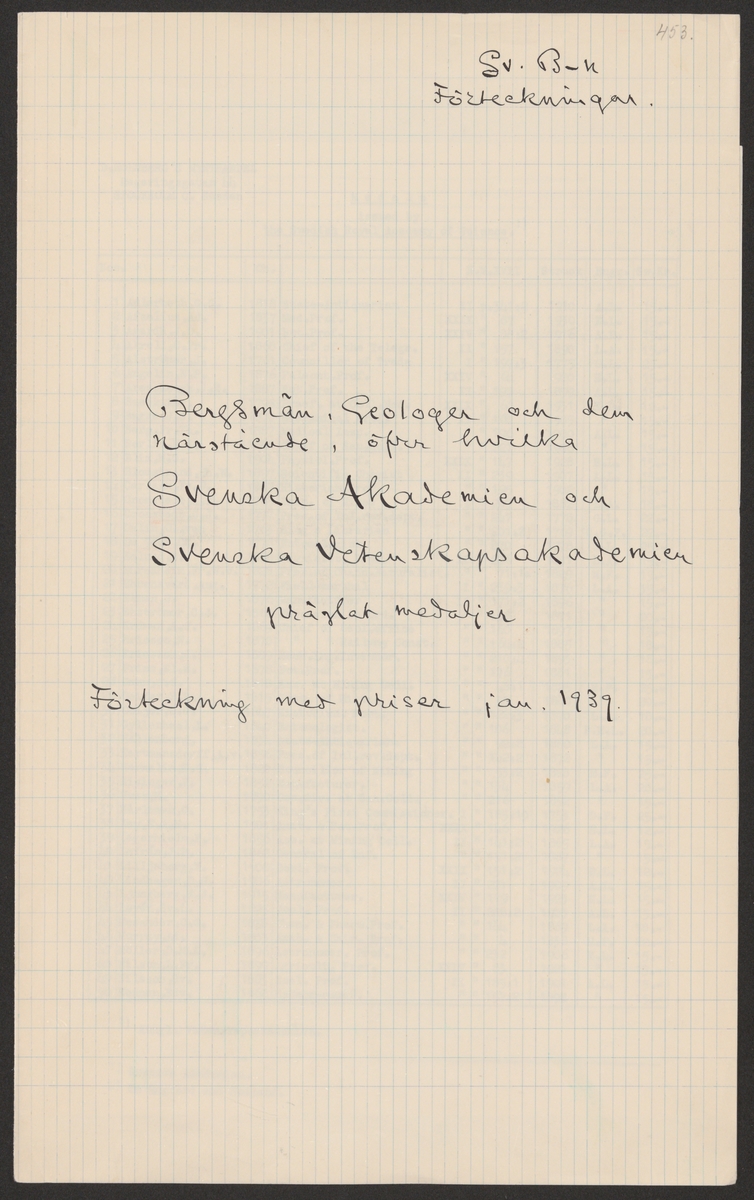 453.
Sv. B-n
Förteckningar.
Bergsmän, Geologer och dem
närstående, öfver hvilka
Svenska Akademien och
Svenska Vetenskapsakademien
präglat medaljer
Förteckning med priser jan. 1939.